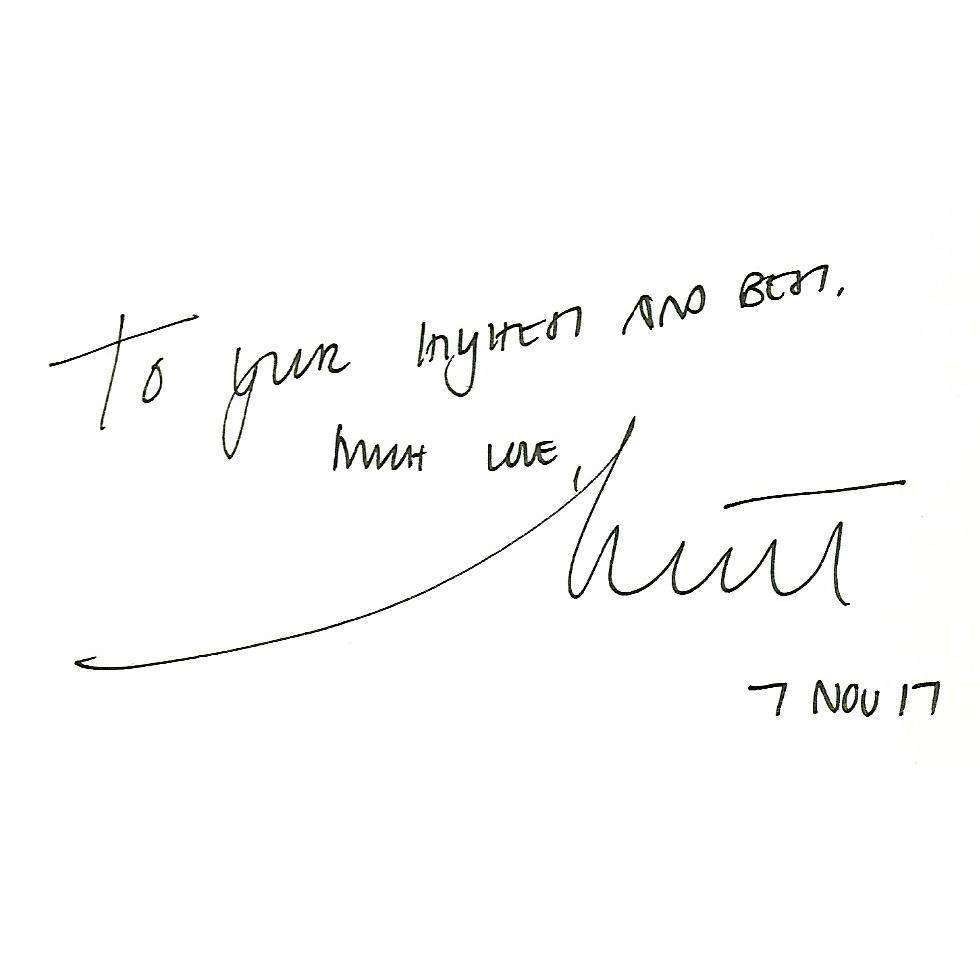 To your HIGHEST AND BEST.
MUCH LOVE,
7 NOV 17